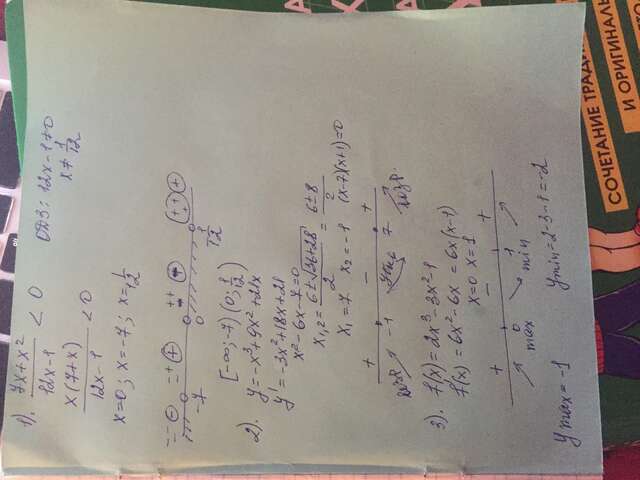 1). (7x+x²)/(12x-1) < 0 ОДЗ: 12x-1≠0
x≠1/12
x(7+x)/(12x-1) < 0
x=0; x=-7; x=1/12
-7 0 1/12
[-∞;-7) (0; 1/12)
2). y=-x³+9x²+21x
y'=-3x²+18x+21
x²-6x-7=0
x₁,₂ = (6±√(36+28))/2 = (6±8)/2
x₁=7 x₂=-1 (x-7)(x+1)=0
+ - +
возр. -1 убыв 7 возр.
3). f(x)=2x³-3x²-1
f'(x)=6x²-6x=6x(x-1)
x=0 x=1
+ - +
0 1
max min
y max=-1 y min=2-3-1=-2
СОЧЕТАНИЕ
И ОРИГИНАЛЬ